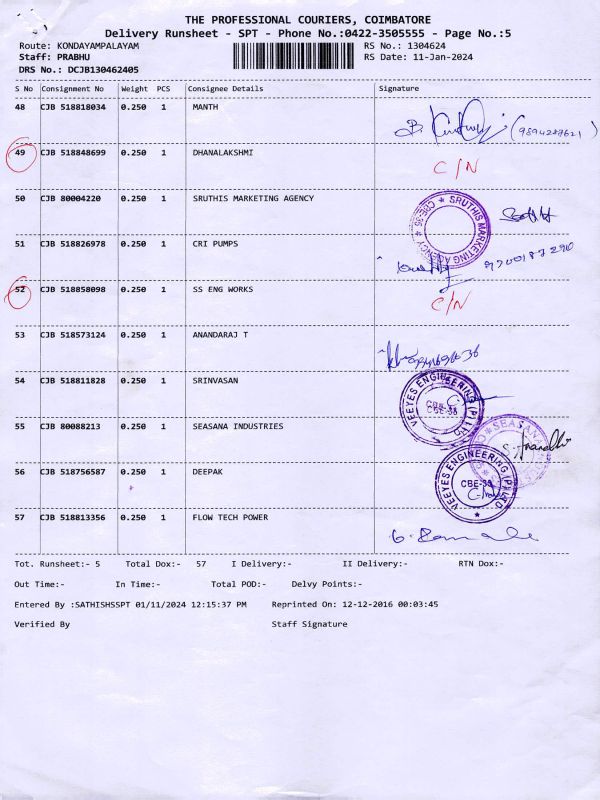 THE PROFESSIONAL COURIERS, COIMBATORE
Delivery Runsheet - SPT - Phone No.:0422-3505555 - Page No.:5
Route: KONDAYAMPALAYAM RS No.: 1304624
Staff: PRABHU RS Date: 11-Jan-2024
DRS No.: DCJB130462405
S No Consignment No Weight PCS Consignee Details Signature
48 CJB 518818034 0.250 1 MANTH
49 CJB 518848699 0.250 1 DHANALAKSHMI C/N
50 CJB 80004220 0.250 1 SRUTHIS MARKETING AGENCY
SRUTHIS MARKETING AGENCY CBE-35
51 CJB 518826978 0.250 1 CRI PUMPS
52 CJB 518858098 0.250 1 SS ENG WORKS C/N
53 CJB 518573124 0.250 1 ANANDARAJ T
54 CJB 518811828 0.250 1 SRINVASAN
VEEYES ENGINEERING (P) LTD CBE-35
55 CJB 80088213 0.250 1 SEASANA INDUSTRIES
56 CJB 518756587 0.250 1 DEEPAK
VEEYES ENGINEERING (P) LTD CBE-35
57 CJB 518813356 0.250 1 FLOW TECH POWER
Tot. Runsheet:- 5 Total Dox:- 57 I Delivery:- II Delivery:- RTN Dox:-
Out Time:- In Time:- Total POD:- Delvy Points:-
Entered By :SATHISHSSPT 01/11/2024 12:15:37 PM Reprinted On: 12-12-2016 00:03:45
Verified By Staff Signature